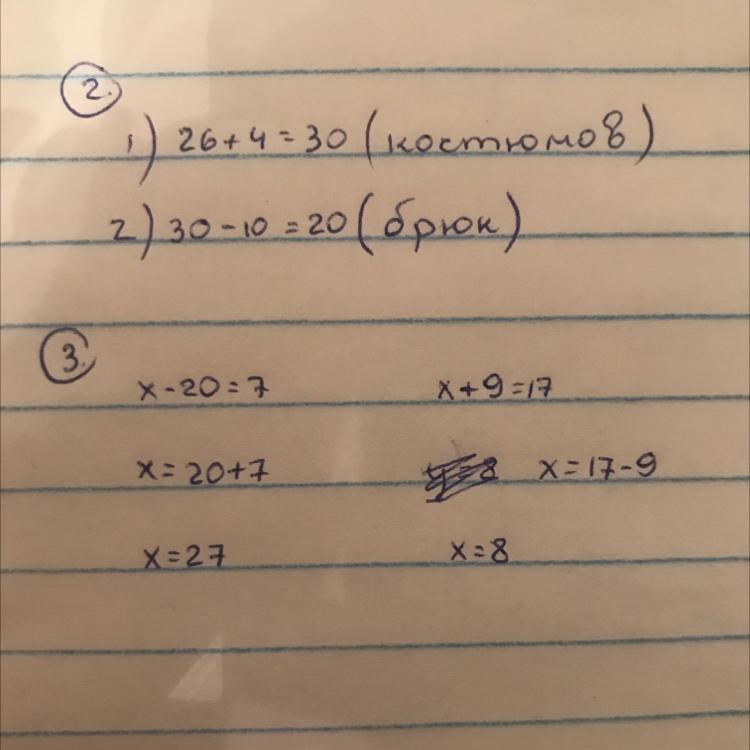 2.
1) 26+4=30 (костюмов)
2) 30-10=20 (брюк)
3.
x-20=7 x+9=17
x=20+7 x=17-9
x=27 x=8